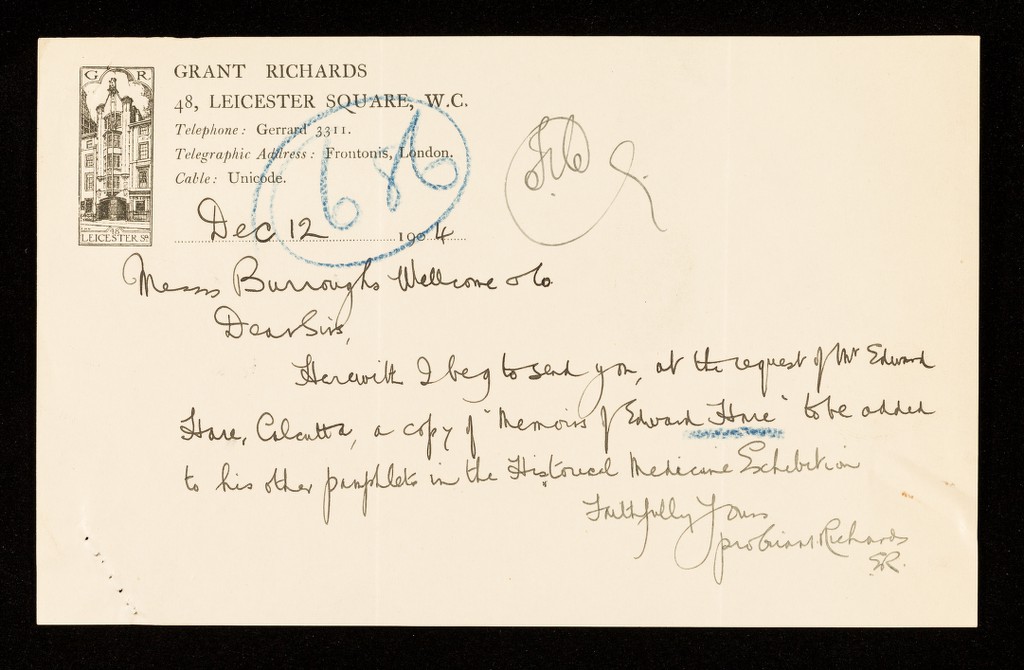 G R
48
LEICESTER SQ.
GRANT RICHARDS
48, LEICESTER SQUARE, W.C.
Telephone: Gerrard 3311.
Telegraphic Address: Frontonis, London.
Cable: Unicode.
686
Dec 12 1904
Messrs Burroughs Wellcome & Co
Dear Sirs,
Herewith I beg to send you, at the request of Mr Edward
Hare, Calcutta, a copy of "Memoirs of Edward Hare" to be added
to his other pamphlets in the Historical Medicine Exhibition
Faithfully Yours
pro Grant Richards
SR.